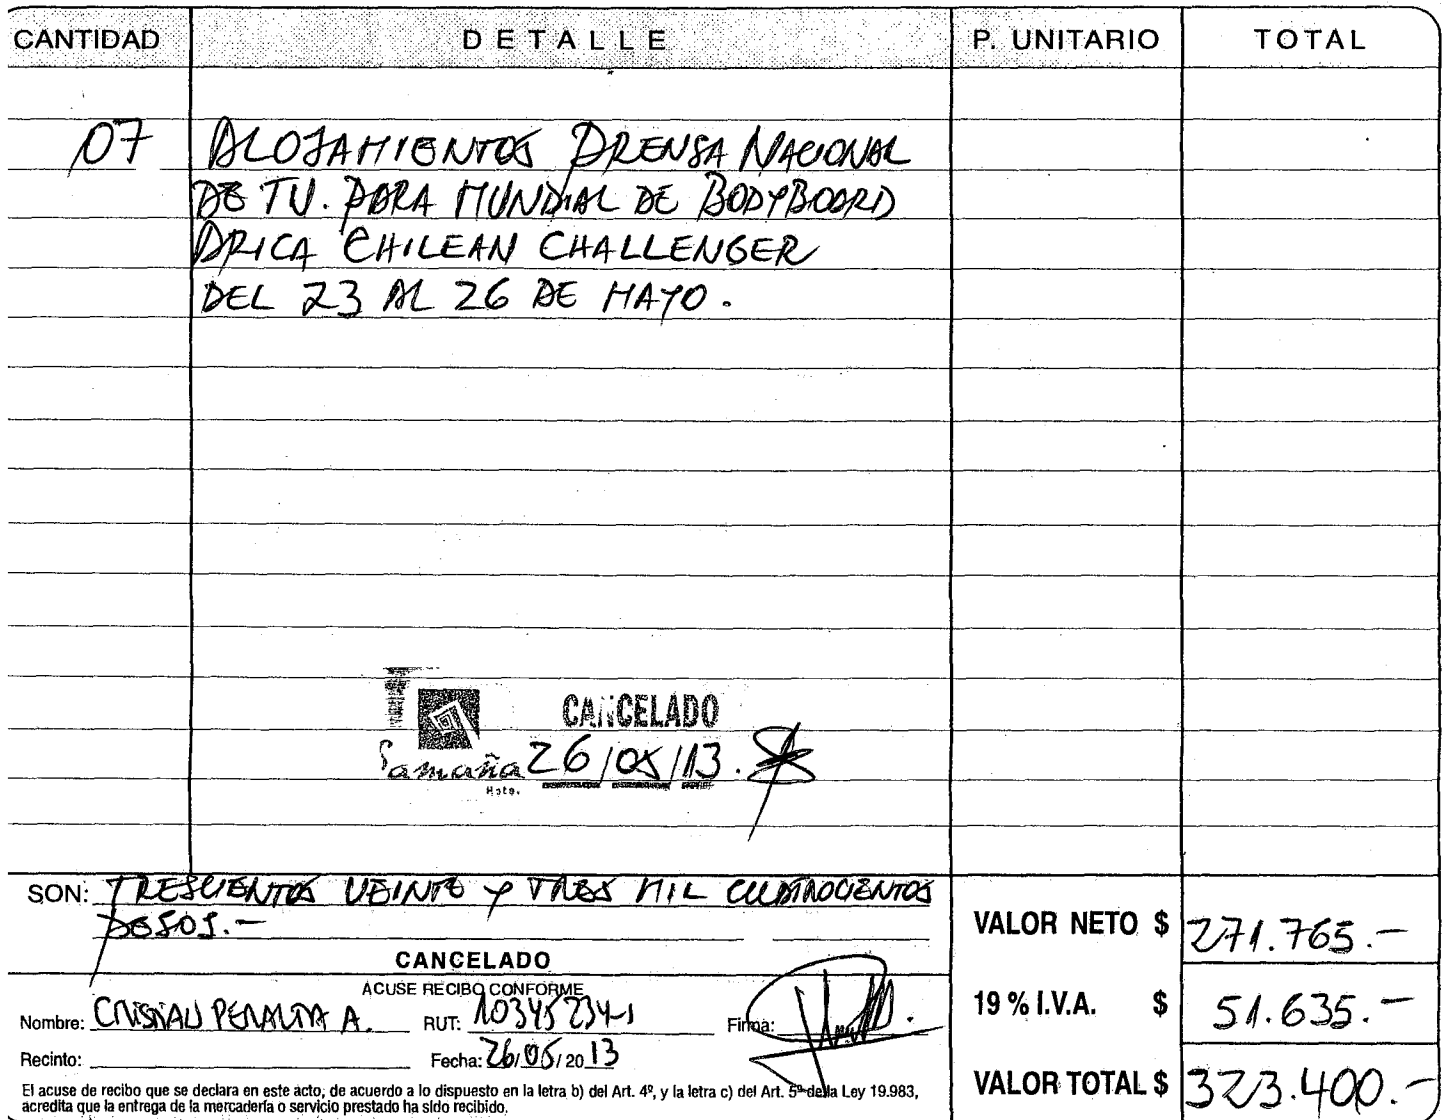 CANTIDAD DETALLE P. UNITARIO TOTAL
07 ALOJAMIENTOS PRENSA NACIONAL
DE TV. PARA MUNDIAL DE BODYBOARD
ARICA CHILEAN CHALLENGER
DEL 23 AL 26 DE MAYO.
CANCELADO
Samaña 26/05/13.
SON: TRESCIENTOS VEINTE Y TRES MIL CUATROCIENTOS
PESOS.-
VALOR NETO $ 271.765.-
CANCELADO
ACUSE RECIBO CONFORME
Nombre: CRISTIAN PERALTA A. RUT: 10345234-1 Firma:
19 % I.V.A. $ 51.635.-
Recinto: Fecha: 26/05/2013
VALOR TOTAL $ 323.400.-
El acuse de recibo que se declara en este acto, de acuerdo a lo dispuesto en la letra b) del Art. 4º, y la letra c) del Art. 5º de la Ley 19.983,
acredita que la entrega de la mercadería o servicio prestado ha sido recibido.